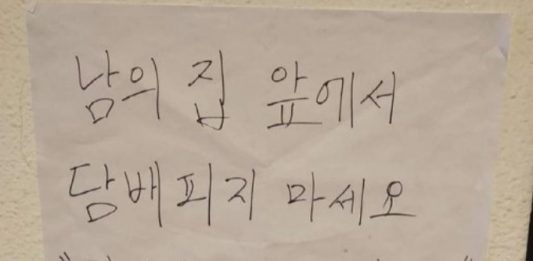 남의 집 앞에서
담배피지 마세요